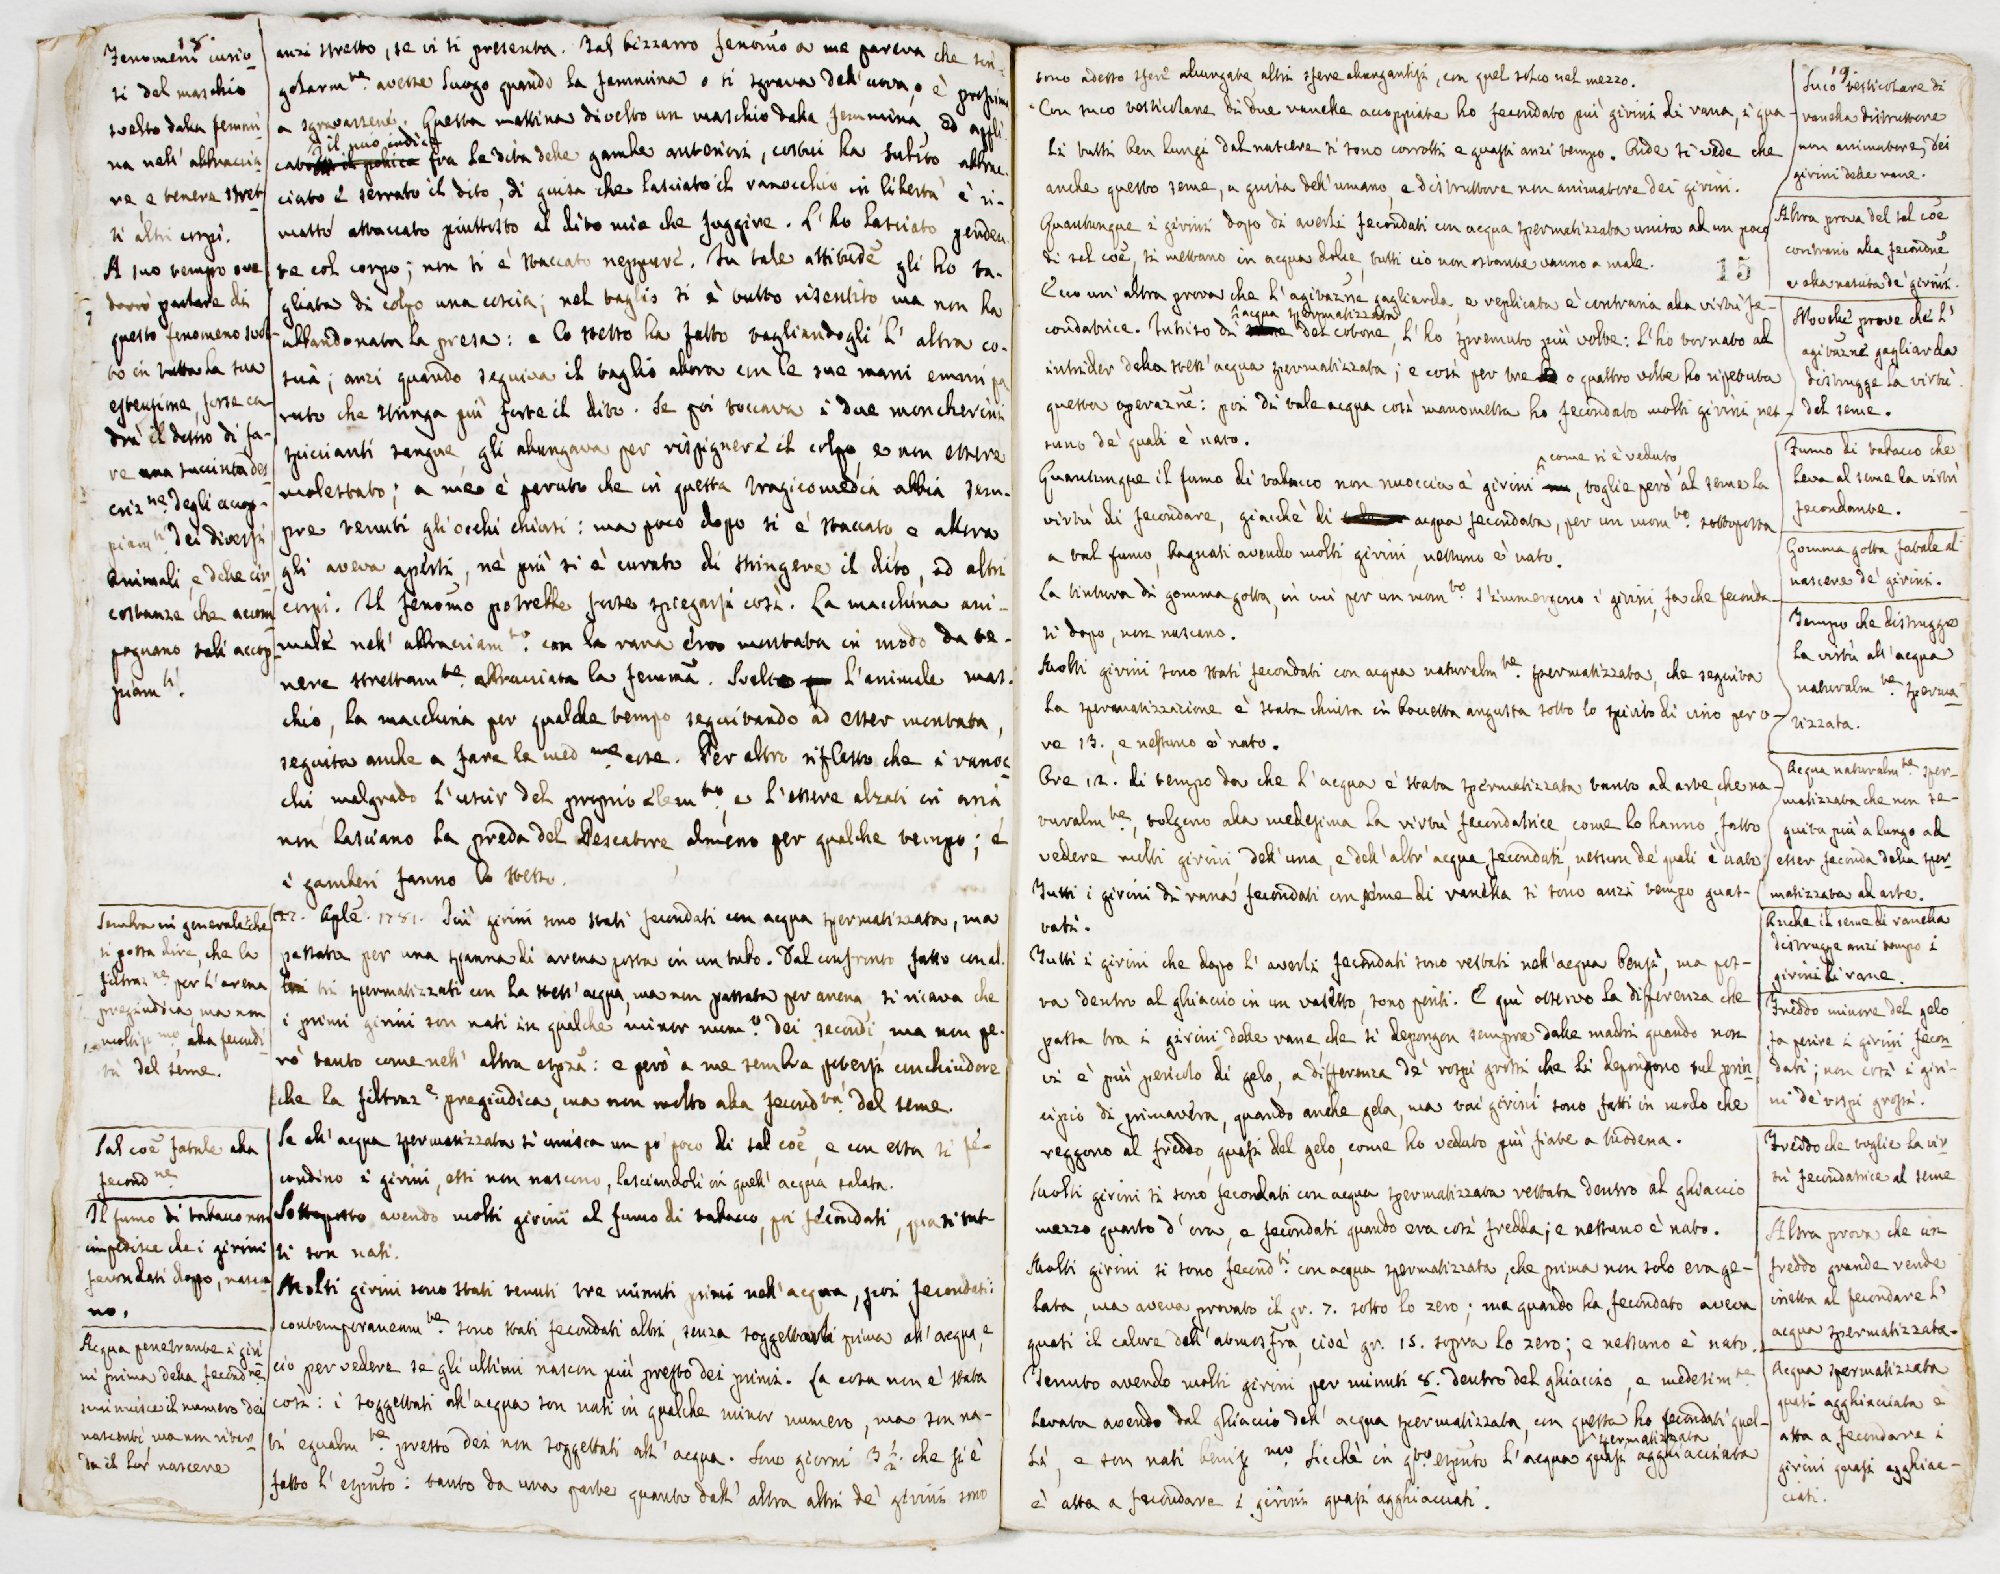 18.
Fenomeni curio-
si del maschio
svelto dalla femmi
na nell' abbraccia-
re e tenere stret-
ti altri corpi.
A suo tempo ove
dovrò parlare di
questo fenomeno svol-
to in tutta la sua
estensione, forse ca-
drà il destro di fa-
re una succinta des
criz.ne degli accop-
piam.ti dei diversi
animali, e delle cir
costanze che accom
pagnano tali accop-
piam.ti.
anzi stretto, se vi si presenta. Tal bizzarro fenomeno a me pareva che sin-
golarm.te avesse luogo quando la femmina o si sgrava dell' uova, o è prossima
a sgravarsene. Questa mattina divelto un maschio dalla femmina, ed appli
il mio indice
cato fra le dita delle gambe anteriori, costui ha subito abbrac-
ciato e serrato il dito, di guisa che lasciato il ranocchio in libertà è ri-
masto attaccato piuttosto al dito mio che fuggire. L' ho lasciato penden-
te col corpo; non si è staccato neppure. In tale attitudine gli ho ta-
gliata di colpo una coscia; nel taglio si è tutto risentito ma non ha
abbandonata la presa: e lo stesso ha fatto tagliandogli l' altra co-
scia; anzi quando seguiva il taglio allora con le sue mani emmi pa
ruto che stringa più forte il dito. Se poi toccava i due moncherini
spiccianti sangue, gli allungava per rispignere il colpo e non essere
molestato; a me è paruto che in questa tragicomedia abbia sem-
pre tenuti gli occhi chiusi: ma poco dopo si è staccato e allora
gli aveva aperti, nè più si è curato di stringere il dito, ed altri
corpi. Il fenomo potrebbe forse spiegarsi così. La macchina ani-
male nell' abbracciam.to con la rana era montata in modo da te-
nere strettam.te abbracciata la femma. Svelto l'animale mas-
chio, la macchina per qualche tempo seguitando ad esser montata,
seguita anche a fare le med.me cose. Per altro rifletto che i ranoc
chi malgrado l'uscir del proprio elem.to, e l'essere alzati in aria
non lasciano la preda del Pescatore, almeno per qualche tempo; e
i gamberi fanno lo stesso.
Sembra in generale che
si possa dire, che la
filtraz.ne per l'arena
pregiudica, ma non
moltiss.mo alla fecondi
tà del seme.
22. Aple. 1781. Più girini sono stati fecondati con acqua spermatizzata, ma
passata per una spanna di arena posta in un tubo. Dal confronto fatto con al-
tri spermatizzati con la stess' acqua, ma non passata per arena si ricava che
i primi girini son nati in qualche minor num.o dei secondi, ma non pe-
rò tanto come nell' altra espza: e però a me sembra potersi conchiudere
che la filtraz.e pregiudica, ma non molto alla fecond.tà del seme.
Sal coe fatale alla
fecond.ne
Se all' acqua spermatizzata si unisca un po' poco di sal coe, e con essa si fe-
condino i girini, essi non nascono, lasciandoli in quell' acqua salata.
Il fumo di tabacco non
impedisce che i girini
fecondati dopo, nasca
no.
Sottoposto avendo molti girini al fumo di tabacco, poi fecondati, quasi tut-
ti son nati.
Acqua penetrante i giri
ni prima della fecondne
sminuisce il numero dei
nascenti ma non ritar-
da il lor nascere
Molti girini sono stati tenuti tre minuti prima nell' acqua, poi fecondati:
contemporaneam.te sono stati fecondati altri, senza soggettarli prima all' acqua, e
ciò per vedere se gli ultimi nascon più presto dei primi. La cosa non è stata
così: i soggettati all' acqua son nati in qualche minor numero, ma son na-
ti egualm.te presto dei non soggettati all' acqua. Sono giorni 3 1/2. che si è
fatto l' espnto: tanto da una parte quanto dall' altra altri de' girini sono
19.
sono adesso sfere allungate altri sfere allungantisi, con quel solco nel mezzo.
Con suco testicolare di due ranelle accoppiate ho fecondato più girini di rana, i qua-
li tutti ben lungi dal nascere si sono corrotti e guasti anzi tempo. Onde si vede che
anche questo seme, a guisa dell'umano, e distruttore non animatore dei girini.
Suco testicolare di
ranella distruttore
non animatore, dei
girini delle rane.
Quantunque i girini dopo di averli fecondati con acqua spermatizzata unita ad un poco
di sal coe, si mettano in acqua dolce, tutti ciò non ostante vanno a male.
Altra prova del sal coe
contrario alla fecondne
e alla nascita de' girini.
15
Ecco un' altra prova che l' agitazne gagliarda, e replicata è contraria alla virtù fe-
acqua spermatizzata
condatrice. Intriso di del cotone, l' ho spremuto più volte: l'ho tornato ad
intrider della stess' acqua spermatizzata; e così per tre o quattro volte ho ripetuta
questa operazne: poi di tale acqua così manomessa ho fecondato molti girini, nes-
suno de' quali è nato.
Novelle prove che l'
agitazne gagliarda
distrugge la virtù
del seme.
come si è veduto
Quantunque il fumo di tabacco non nuoccia a' girini, toglie però al seme la
virtù di fecondare, giacchè di acqua fecondata, per un mom.to sottoposta
a tal fumo, bagnati avendo molti girini, nessuno è nato.
Fumo di tabacco che
leva al seme la virtù
fecondante.
La tintura di gomma gotta, in cui per un mom.to s'immergono i girini, fa che feconda-
ti dopo, non nascano.
Gomma gotta fatale al
nascere de' girini.
Molti girini sono stati fecondati con acqua naturalm.te spermatizzata, che seguita
la spermatizzazione è stata chiusa in boccetta angusta sotto lo spirito di vino per o-
re 13., e nessuno è nato.
Tempo che distrugge
la virtù all' acqua
naturalm.te sperma-
tizzata.
Ore 12. di tempo da che l' acqua è stata spermatizzata tanto ad arte, che na-
turalm.te, tolgono alla medesima la virtù fecondatrice, come lo hanno fatto
vedere molti girini, dell' una, e dell' altr' acqua fecondati, nessun de' quali è nato
Acqua naturalm.te sper-
matizzata che non se-
guita più a lungo ad
esser feconda della sper-
matizzata ad arte.
Tutti i girini di rana fecondati con seme di ranella si sono anzi tempo guas-
tati.
Anche il seme di ranella
distrugge anzi tempo i
girini di rane.
Tutti i girini che dopo l' averli fecondati sono restati nell' acqua bensì, ma pos-
ta dentro al ghiaccio in un vasetto, sono periti. E quì osservo la differenza che
passa tra i girini delle rane che si depongon sempre dalle madri quando non
vi è più pericolo di gelo, a differenza de' rospi grossi che li depongono sul prin-
cipio di primavera, quando anche gela, ma tai girini sono fatti in modo che
reggono al freddo, quasi del gelo, come ho veduto più fiate a Modena.
Freddo minore del gelo
fa perire i girini fecon
dati; non così i giri-
ni de' rospi grossi.
Molti girini si sono fecondati con acqua spermatizzata restata dentro al ghiaccio
mezzo quarto d' ora, e fecondati quando era così fredda; e nessuno è nato.
Freddo che toglie la vir-
tù fecondatrice al seme
Molti girini si sono fecond.ti con acqua spermatizzata, che prima non solo era ge-
lata, ma aveva provato il gr. 7. sotto lo zero; ma quando ha fecondato aveva
quasi il calore dell' atmosfra, cioè gr. 15. sopra lo zero; e nessuno è nato.
Altra prova che un
freddo grande rende
inetta al fecondare l'
acqua spermatizzata.
Tenuto avendo molti girini per minuti 8. dentro del ghiaccio, e medesim.te
levata avendo dal ghiaccio dell' acqua spermatizzata, con questa ho fecondati quel-
spermatizzata
li, e son nati beniss.mo Sicchè in q.to espnto l' acqua quasi agghiacciata
è atta a fecondare i girini quasi agghiacciati.
Acqua spermatizzata
quasi agghiacciata è
atta a fecondare i
girini quasi agghiac-
ciati.